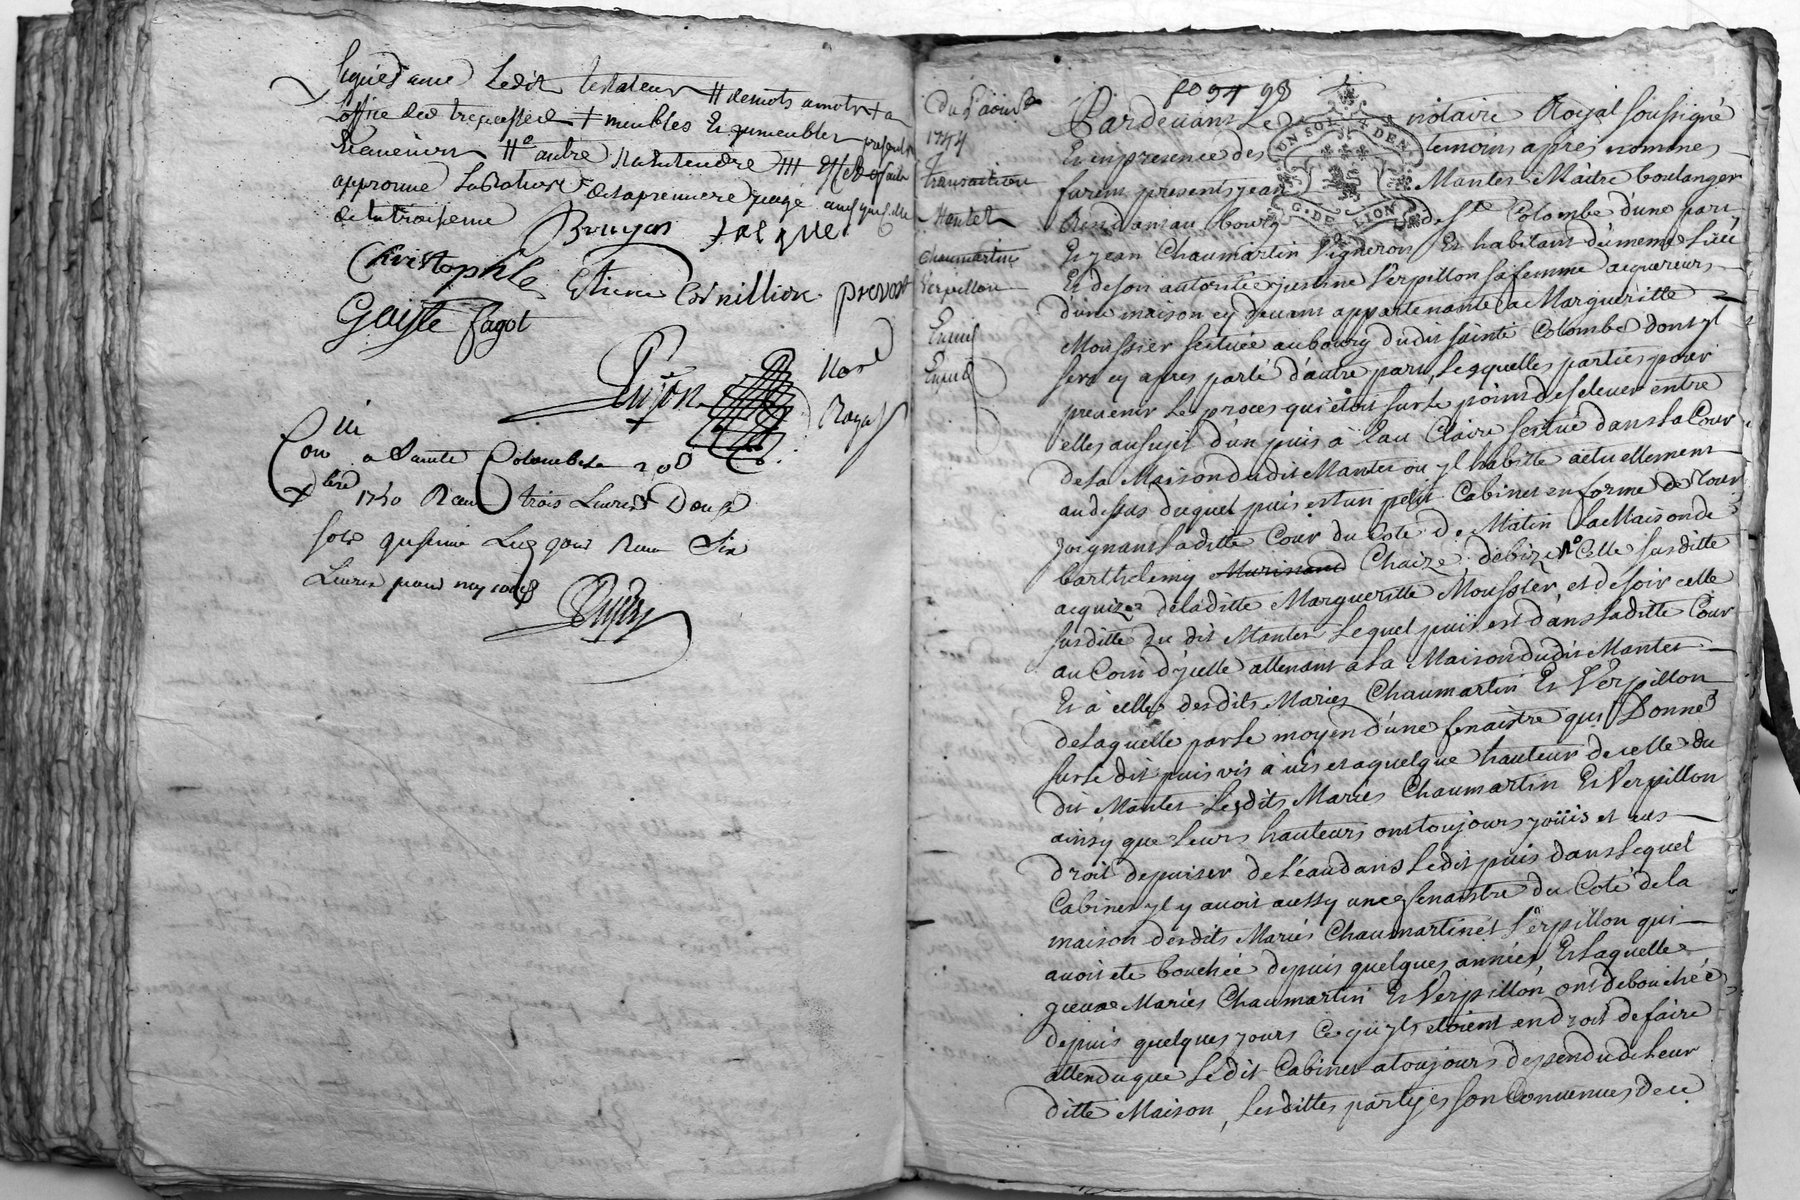 signés avec Ledit testateur # demots amots + a
office des trepassés + meubles Et ymmeubles presents
Eta venir # autre #
approuve La Rature de la premiere page ainsy que celle
de la troiseme Bruyas
Christophle Etienne Cornillion prevost
Gaiste fagot
Dujon Not
Royal
Con
a Sainte Colombe Le
1750 Recu trois Livres Douze
sols Recu Six
Livres pour
Dujon
Du aoust
1744
transaition
Mantet
Chaumartin
Verpillon
Exped
Exped
fo 97 98
UN SOL 4 DEN
G. DE LION
Pardevant Le notaire Royal soussigné
Et en presence des temoins après nommés
furent presents jean Mantet Maitre boulanger
Residant au bourg de Ste Colombe d'une part
Et jean Chaumartin Vigneron Et habitant du meme Lieu
Et de son autorité justine Verpillon sa femme acquereurs
d'une maison cy devant appartenante a Margueritte
Moussier scituée au bourg dudit sainte Colombe dont yl
sera cy apres parlé d'autre part, Lesquelles parties pour
prevenir Le proces qui étoit sur Le point de seleuer entre
elles au sujet d'un puis à Eau Claire scitué dans La Cour
de la Maison dudit Mantet ou yl habitte actuellement
au dessus duquel puis est un petit Cabinet en forme de Tour
joignant Laditte Cour du Coté de Matin La Maison de
barthelemy Chaize, debize Celle susditte
acquize de laditte Margueritte Moussier, et de soir celle
susditte du dit Mantet Lequel puis est dans Laditte Cour
au Coin d'ycelle attenant a La Maison dudit Mantet
Et à celle desdits Maries Chaumartin Et Verpillon
de Laquelle par Le moyen d'une fenaistre qui Donne
sur Le dit puis vis à vis et a quelque hauteur de celle du
dit Mantet Lesdits Maries Chaumartin Et Verpillon
ainsy que Leurs hauteurs ont toujours jöüis et eus
droit de puiser de L'éau dans Ledit puis dans Lequel
Cabinet yl y avoit aussy une fenaistre du Coté de La
maison desdits Mariés Chaumartin et Verpillon qui
avoit eté bouchée depuis quelques années Et Laquelle
yceux Mariés Chaumartin Et Verpillon ont debouchée
depuis quelques jours Ce qu'yls etoient en droit de faire
attendu que Ledit Cabinet a toujours dependu de Leur
ditte Maison, Lesdittes partyes son Convenues de ce